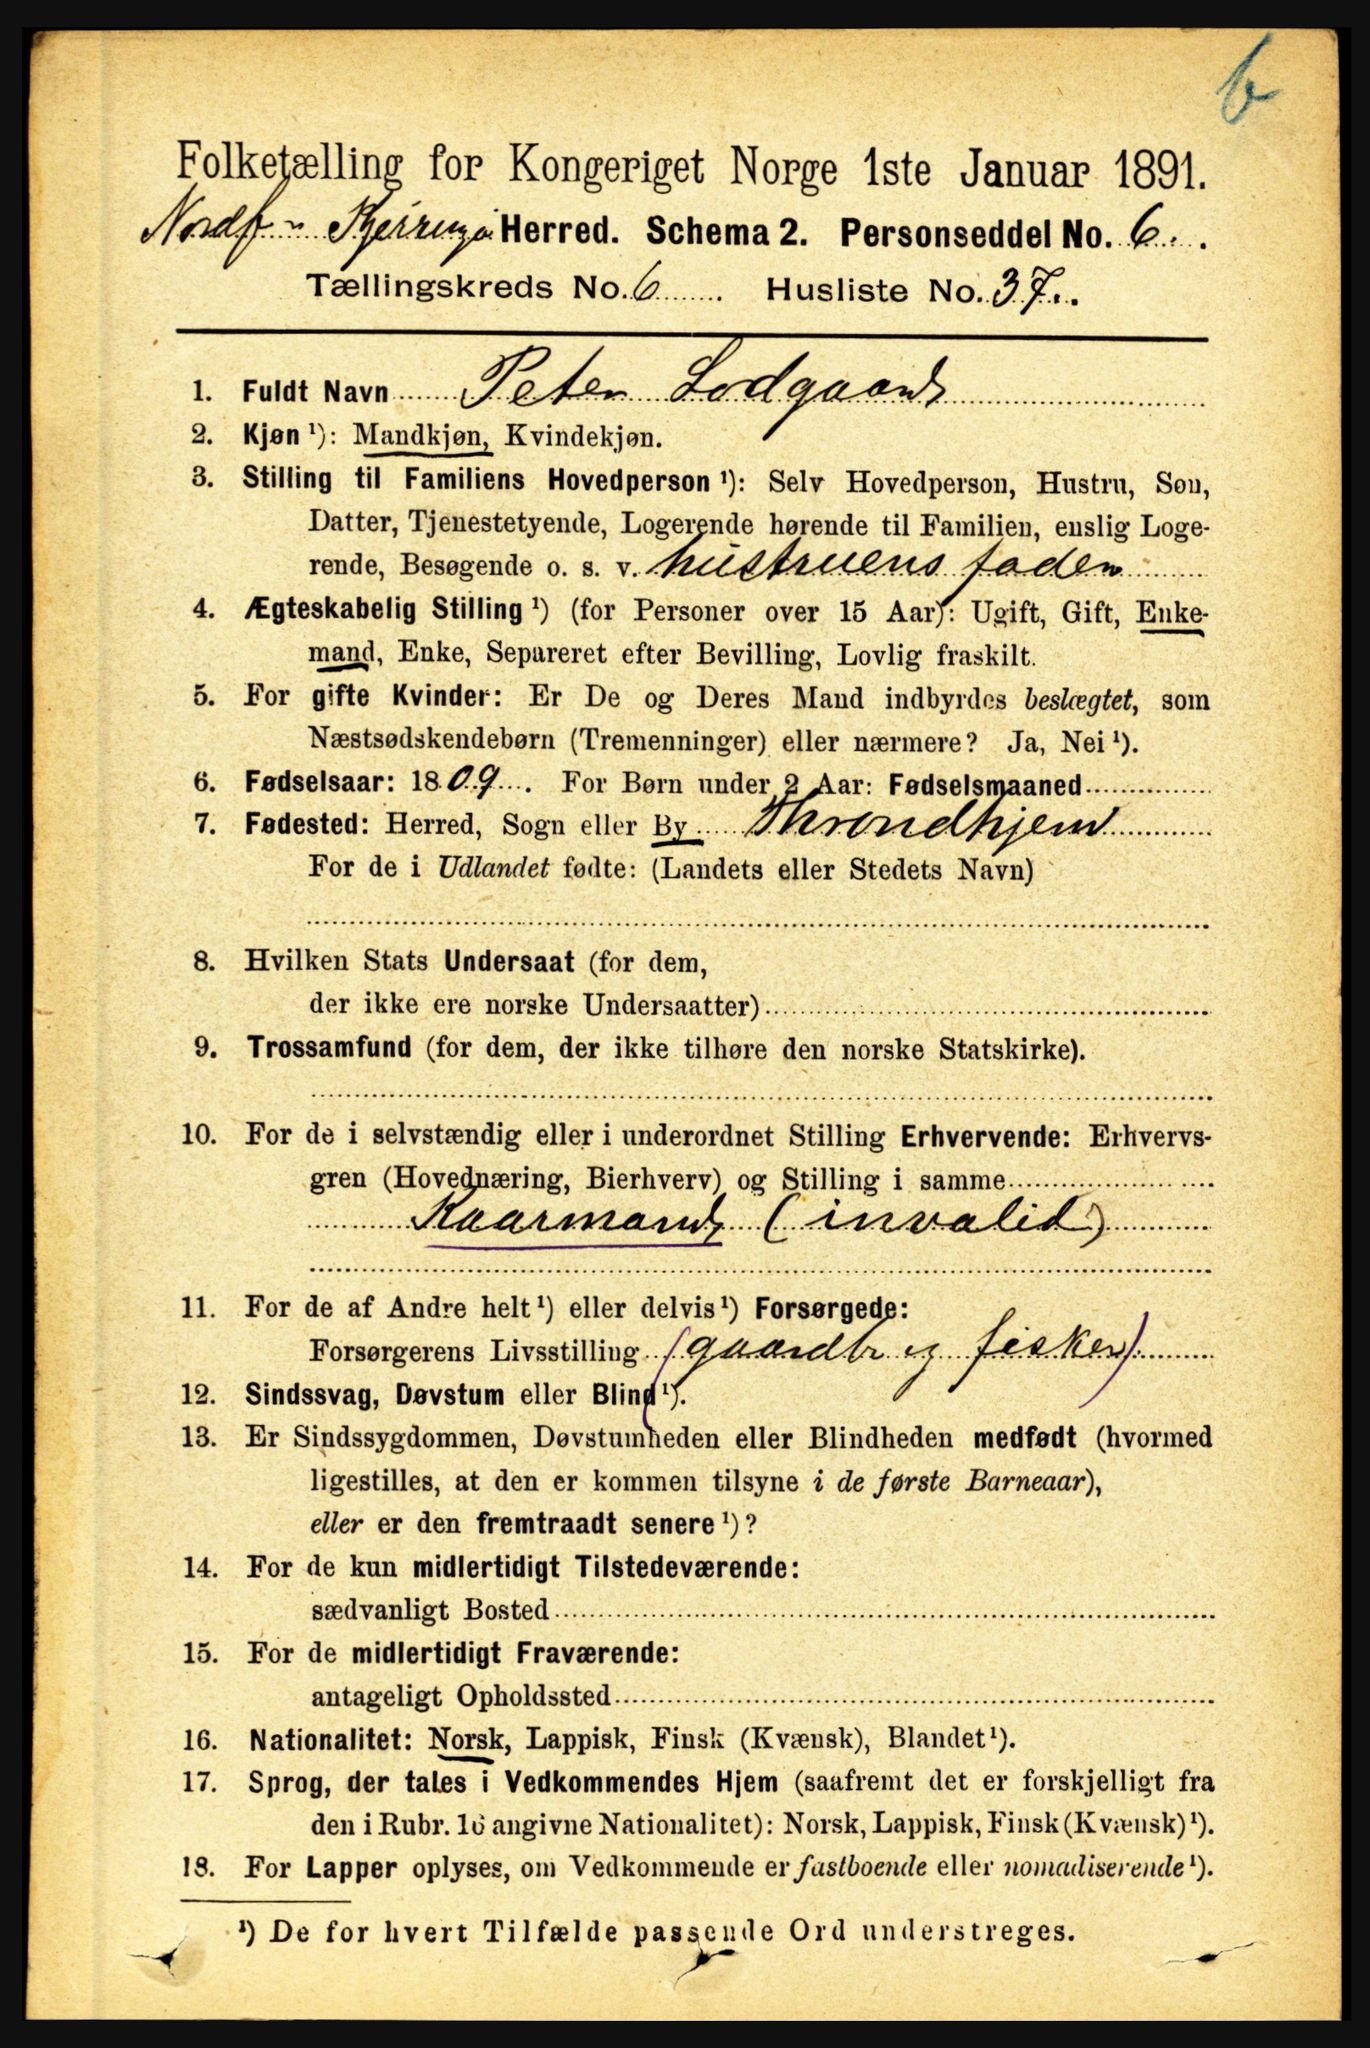 6
Folketælling for Kongeriget Norge 1ste Januar 1891.
Nordf - Kjerringø Herred. Schema 2. Personseddel No. 6.
Tællingskreds No. 6 Husliste No. 37.
1. Fuldt Navn Peter Lodgaard
2. Kjøn ¹): Mandkjøn, Kvindekjøn.
3. Stilling til Familiens Hovedperson ¹): Selv Hovedperson, Hustru, Søn,
Datter, Tjenestetyende, Logerende hørende til Familien, enslig Loge-
rende, Besøgende o. s. v. hustruens fader
4. Ægteskabelig Stilling ¹) (for Personer over 15 Aar): Ugift, Gift, Enke-
mand, Enke, Separeret efter Bevilling, Lovlig fraskilt.
5. For gifte Kvinder: Er De og Deres Mand indbyrdes beslægtet, som
Næstsødskendebørn (Tremenninger) eller nærmere? Ja, Nei ¹).
6. Fødselsaar: 1809. For Børn under 2 Aar: Fødselsmaaned
7. Fødested: Herred, Sogn eller By Throndhjem
For de i Udlandet fødte: (Landets eller Stedets Navn)
8. Hvilken Stats Undersaat (for dem,
der ikke ere norske Undersaatter)
9. Trossamfund (for dem, der ikke tilhøre den norske Statskirke).
10. For de i selvstændig eller i underordnet Stilling Erhvervende: Erhvervs-
gren (Hovednæring, Bierhverv) og Stilling i samme
Kaarmand (invalid)
11. For de af Andre helt ¹) eller delvis ¹) Forsørgede:
Forsørgerens Livsstilling (gaardbr og fisker)
12. Sindssvag, Døvstum eller Blind ¹).
13. Er Sindssygdommen, Døvstumheden eller Blindheden medfødt (hvormed
ligestilles, at den er kommen tilsyne i de første Barneaar),
eller er den fremtraadt senere ¹)?
14. For de kun midlertidigt Tilstedeværende:
sædvanligt Bosted
15. For de midlertidigt Fraværende:
antageligt Opholdssted
16. Nationalitet: Norsk, Lappisk, Finsk (Kvænsk), Blandet ¹).
17. Sprog, der tales i Vedkommendes Hjem (saafremt det er forskjelligt fra
den i Rubr. 16 angivne Nationalitet): Norsk, Lappisk, Finsk (Kvænsk) ¹).
18. For Lapper oplyses, om Vedkommende er fastboende eller nomadiserende ¹).
¹) De for hvert Tilfælde passende Ord understreges.